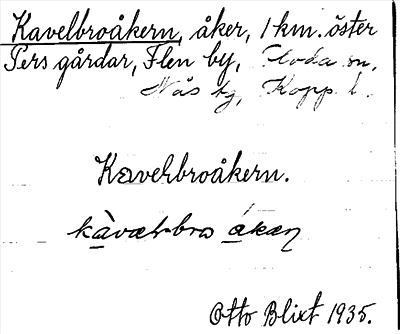 Kavelbroåkern, åker, 1 km. öster
Pers gårdar, Flen by, Floda sn,
Nås tg, Kopp. l.
Kavelbroåkern.
Otto Blixt 1935.